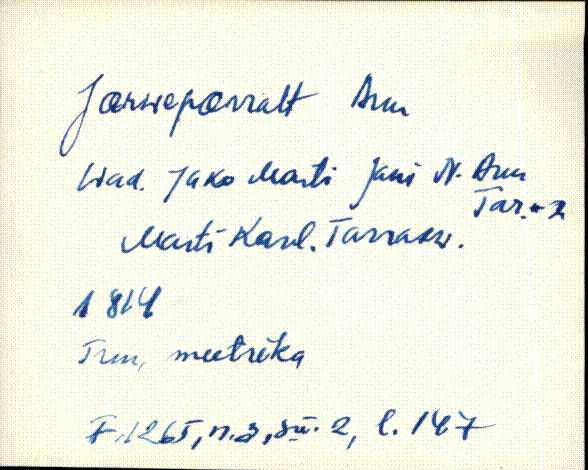 Jærwepærralt Ann
Wiad. Jako Marti Jani N. Ann
Tar.
Marti Karl. Tarrask.
1814
Trm, meetrika
F. 1265, n. 3, sü. 2, l. 147